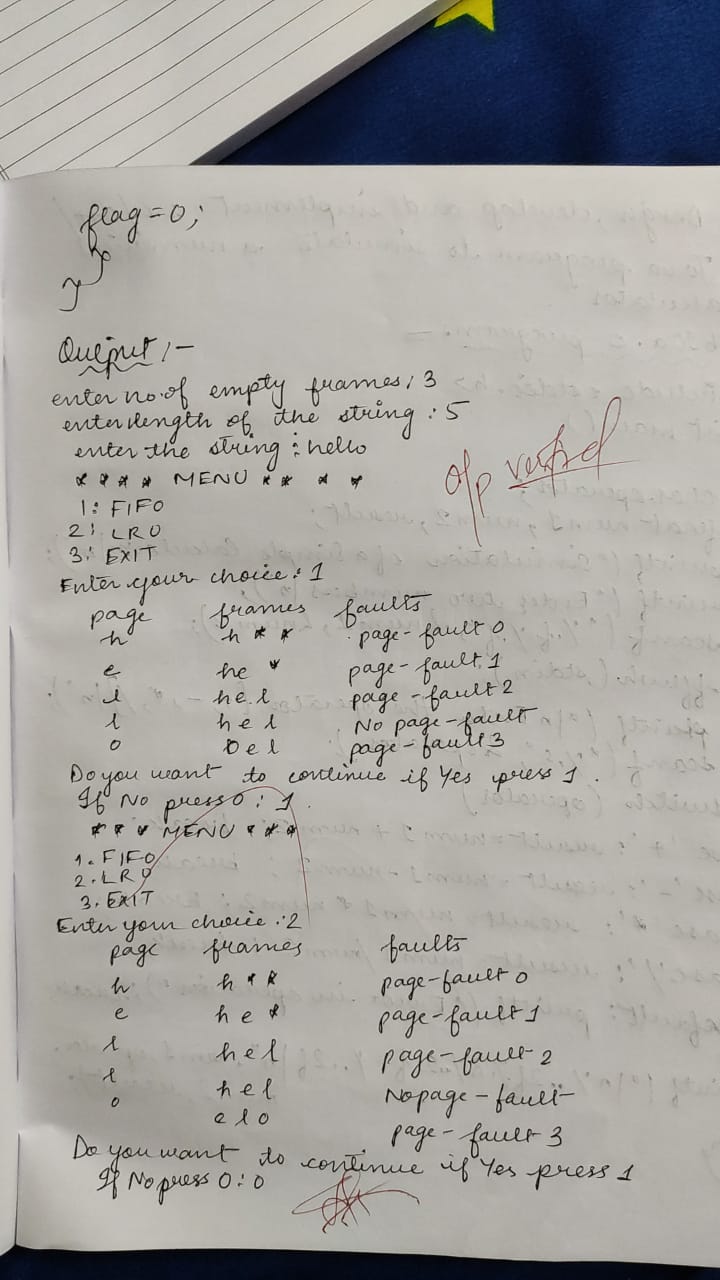 flag=0;
}
}
Output :-
enter no.of empty frames: 3
enter length of the string : 5
enter the string : hello
* * * * MENU * * * *
1: FIFO
2: LRU
3: EXIT
Enter your choice: 1
page frames faults
h h * * page-fault 0
e he * page-fault 1
l hel page-fault 2
l hel No page-fault
o oel page-fault 3
Do you want to continue if Yes press 1.
If No press 0: 1
* * * MENU * * *
1. FIFO
2. LRU
3. EXIT
Enter your choice :2
page frames faults
h h * * page-fault 0
e he * page-fault 1
l hel page-fault 2
l hel Nopage-fault
o elo page-fault 3
Do you want to continue if Yes press 1
If No press 0: 0
o/p verified